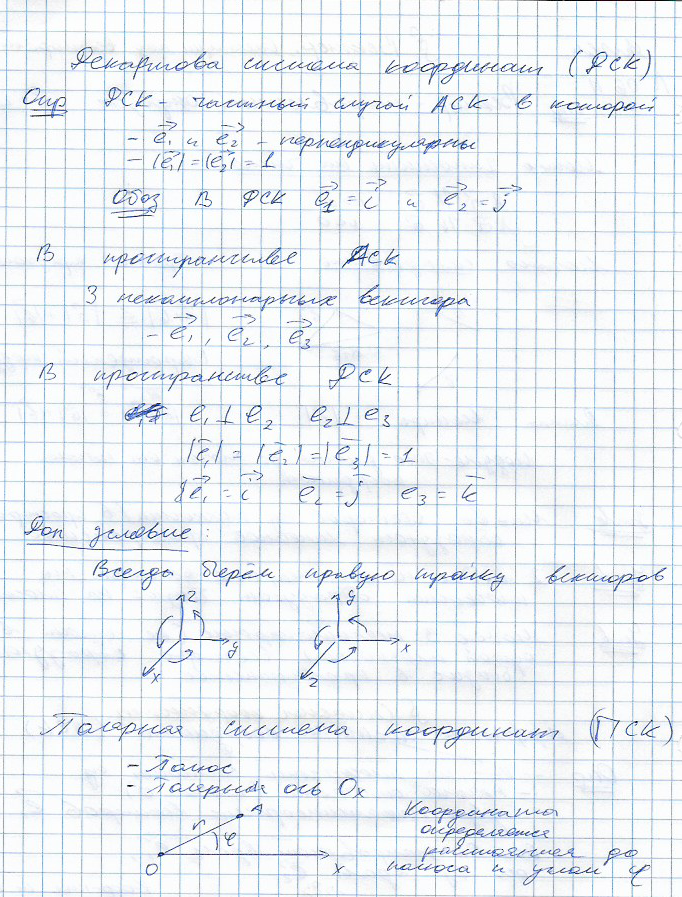 Декартова система координат (ДСК)
Опр ДСК - частный случай АСК в которой
- e₁ и e₂ - перпендикулярны
- |e₁| = |e₂| = 1
Обоз В ДСК e₁ = i и e₂ = j
В пространстве АСК
3 некомпланарных вектора
- e₁, e₂, e₃
В пространстве ДСК
e₁ ⊥ e₂ e₂ ⊥ e₃
|e₁| = |e₂| = |e₃| = 1
e₁ = i e₂ = j e₃ = k
Доп условие:
Всегда берём правую тройку векторов
z y
y x
x z
Полярная система координат (ПСК)
- Полюс
- Полярный ось Ox
A Координата
r φ определяется
расстоянием до
O x полюса и углом φ